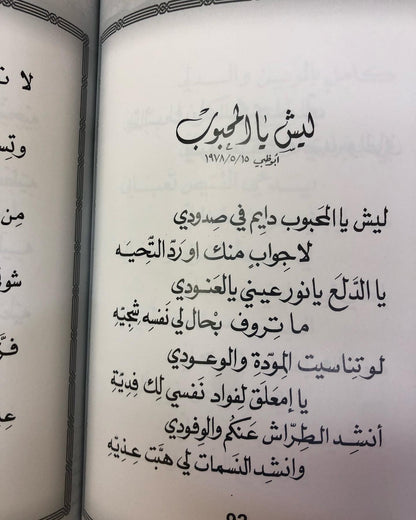 ليش يا المحبوب
أبوظبي ١٩٧٨/٥/١٥
ليش يا المحبوب دايم في صدودي
لا جوابٍ منك او ردّ التّحيه
يا الدّلع يا نور عيني يالعنودي
ما تروف بْحال لي نَفسِه شِجيّه
لو تناسيت المودّة والوعودي
يا إمعلّق لفواد نَفسي لك فديّة
أنشد الطرّاش عَنكُم والوفودي
وانشد النسمات لي هبّت عِذيّه